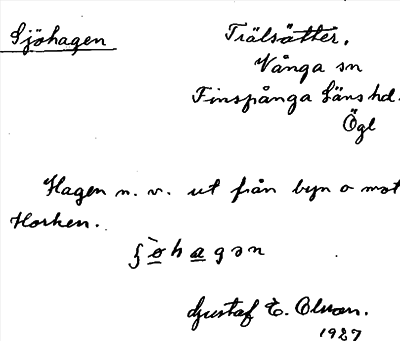 Sjöhagen
Trälsätter.
Vånga sn
Finspånga läns hd.
Ögl
Hagen n. v. ut från byn o mot
Horken.
hagən
Gustaf E. Olsson.
1927